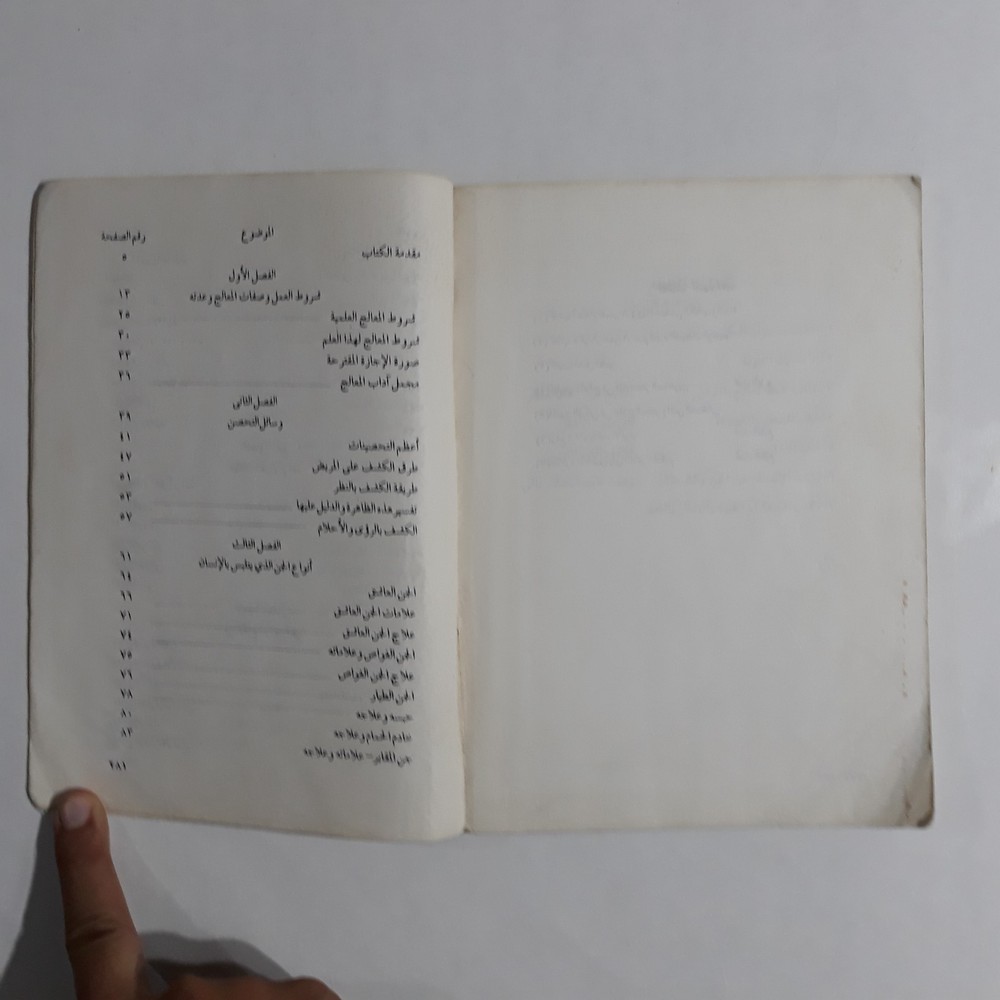 الموضوع رقم الصفحة
مقدمة الكتاب ٥
الفصل الأول
شروط العمل وصفات المعالج وعدته ١٣
شروط المعالج العلمية ٢٥
شروط المعالج لهذا العلم ٣٠
صورة الإجازة المقترحة ٣٣
مجمل آداب المعالج ٣٦
الفصل الثانى
وسائل التحصن ٣٩
أعظم التحصينات ٤١
طرق الكشف على المريض ٤٧
طريقة الكشف بالنظر ٥١
تفسير هذه الظاهرة والدليل عليها ٥٣
الكشف بالرؤى والأحلام ٥٧
الفصل الثالث
أنواع الجن الذي يتلبس بالإنسان ٦١
الجن العاشق ٦٤
علامات الجن العاشق ٦٦
علاج الجن العاشق ٧١
الجن الغواص وعلاماته ٧٤
علاج الجن الغواص ٧٥
الجن الطيار ٧٦
حبسه وعلاجه ٧٨
خادم الحمام وعلاجه ٨٠
جن المقابر - علاماته وعلاجه ٨٣
٢٨١